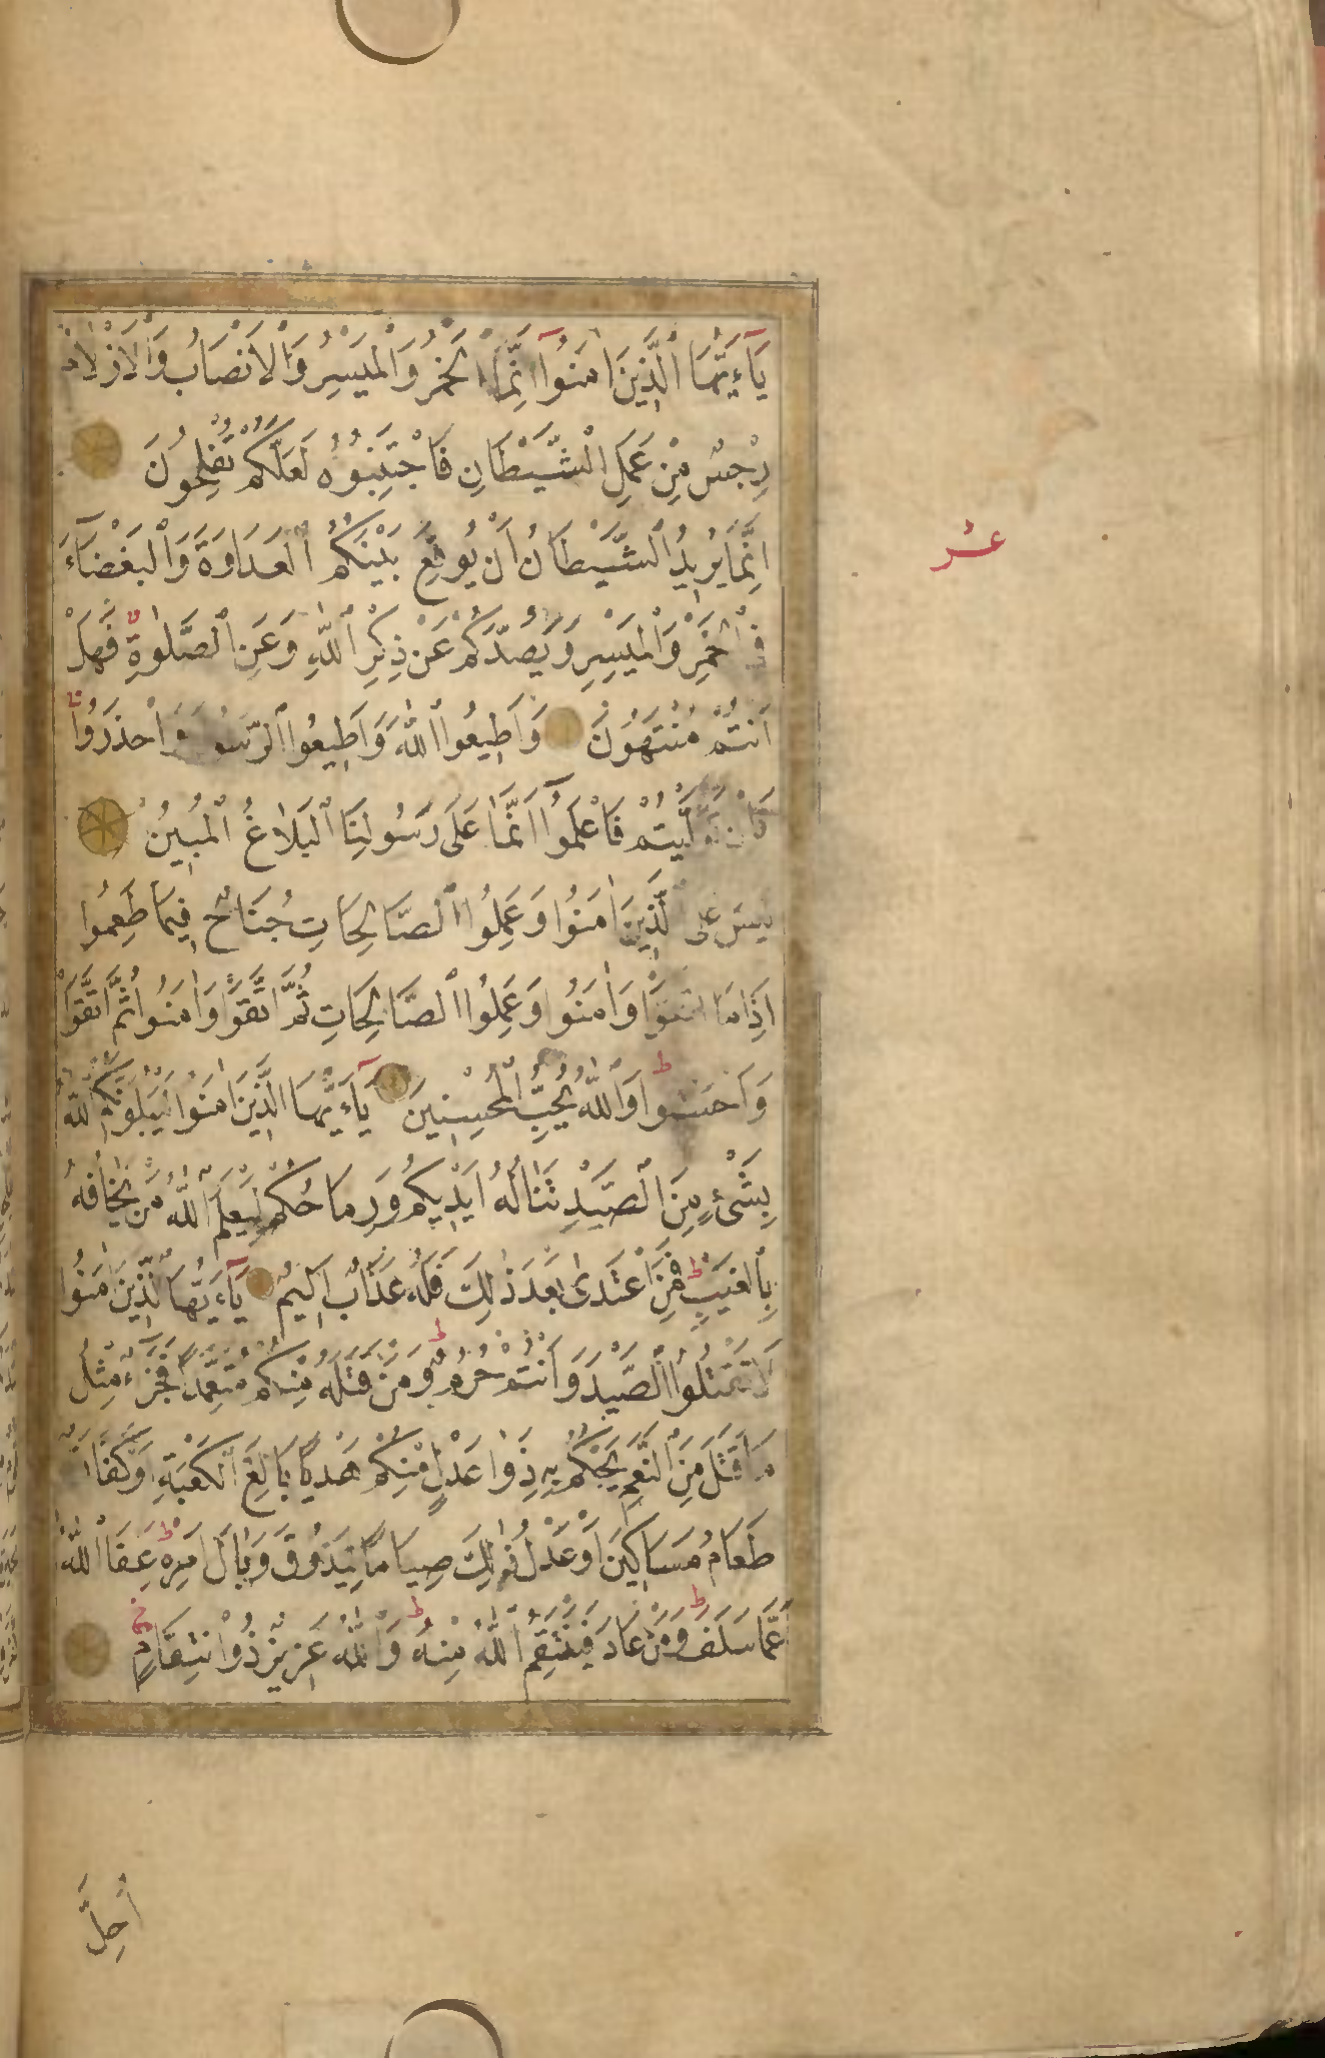 يَآءَيُّهَا ٱلَّذِينَ اٰمَنُوٓا اِنَّمَا ٱلْخَمْرُ وَٱلْمَيْسِرُ وَٱلْاَنْصَابُ وَٱلْاَزْلَامُ
رِجْسٌ مِنْ عَمَلِ ٱلشَّيْطَانِ فَاجْتَنِبُوهُ لَعَلَّكُمْ تُفْلِحُونَ
اِنَّمَا يُرِيدُ ٱلشَّيْطَانُ اَنْ يُوقِعَ بَيْنَكُمُ ٱلْعَدَاوَةَ وَٱلْبَغْضَآءَ
عشر
فِى ٱلْخَمْرِ وَٱلْمَيْسِرِ وَيَصُدَّكُمْ عَنْ ذِكْرِ ٱللّٰهِ وَعَنِ ٱلصَّلٰوةِ فَهَلْ
اَنْتُمْ مُنْتَهُونَ وَاَطِيعُوا ٱللّٰهَ وَاَطِيعُوا ٱلرَّسُولَ وَاحْذَرُوا
فَاِنْ تَوَلَّيْتُمْ فَاعْلَمُوٓا اَنَّمَا عَلَى رَسُولِنَا ٱلْبَلَاغُ ٱلْمُبِينُ
لَيْسَ عَلَى ٱلَّذِينَ اٰمَنُوا وَعَمِلُوا ٱلصَّالِحَاتِ جُنَاحٌ فِيمَا طَعِمُوا
اِذَا مَا اتَّقَوْا وَاٰمَنُوا وَعَمِلُوا ٱلصَّالِحَاتِ ثُمَّ اتَّقَوْا وَاٰمَنُوا ثُمَّ اتَّقَوْا
وَاَحْسَنُوا وَٱللّٰهُ يُحِبُّ ٱلْمُحْسِنِينَ يَآءَيُّهَا ٱلَّذِينَ اٰمَنُوا لَيَبْلُوَنَّكُمُ ٱللّٰهُ
بِشَىْءٍ مِنَ ٱلصَّيْدِ تَنَالُهُ اَيْدِيكُمْ وَرِمَاحُكُمْ لِيَعْلَمَ ٱللّٰهُ مَنْ يَخَافُهُ
بِٱلْغَيْبِ فَمَنِ اعْتَدٰى بَعْدَ ذٰلِكَ فَلَهُ عَذَابٌ اَلِيمٌ يَآءَيُّهَا ٱلَّذِينَ اٰمَنُوا
لَا تَقْتُلُوا ٱلصَّيْدَ وَاَنْتُمْ حُرُمٌ وَمَنْ قَتَلَهُ مِنْكُمْ مُتَعَمِّدًا فَجَزَآءٌ مِثْلُ
مَا قَتَلَ مِنَ ٱلنَّعَمِ يَحْكُمُ بِهِ ذَوَا عَدْلٍ مِنْكُمْ هَدْيًا بَالِغَ ٱلْكَعْبَةِ اَوْ كَفَّارَةٌ
طَعَامُ مَسَاكِينَ اَوْ عَدْلُ ذٰلِكَ صِيَامًا لِيَذُوقَ وَبَالَ اَمْرِهِ عَفَا ٱللّٰهُ
عَمَّا سَلَفَ وَمَنْ عَادَ فَيَنْتَقِمُ ٱللّٰهُ مِنْهُ وَٱللّٰهُ عَزِيزٌ ذُو انْتِقَامٍ
اُحِلَّ